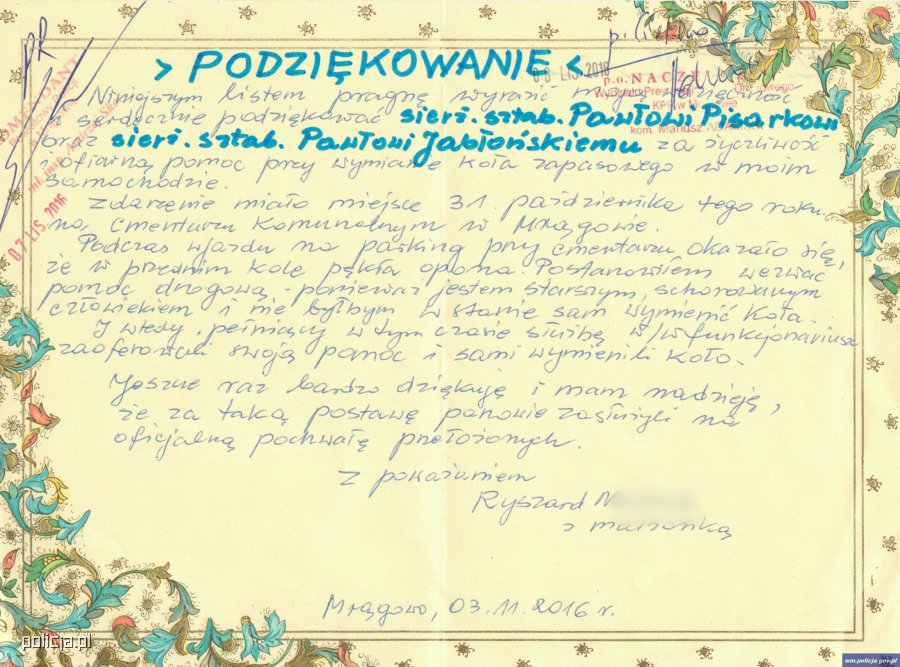 PR
> PODZIĘKOWANIE <
08 LIS. 2016
p.o. NACZ
KPP w
kom. Mariusz
KOMENDANT
07 LIS. 2016
Niniejszym listem pragnę wyrazić moją wdzięczność
i serdecznie podziękować sierż. sztab. Pawłowi Pisarkowi
oraz sierż. sztab. Pawłowi Jabłońskiemu za życzliwość
i ofiarną pomoc przy wymianie koła zapasowego w moim
samochodzie.
Zdarzenie miało miejsce 31. października tego roku
na Cmentarzu Komunalnym w Mrągowie.
Podczas wjazdu na parking przy cmentarzu okazało się,
że w przednim kole pękła opona. Postanowiłem wezwać
pomoc drogową - ponieważ jestem starszym, schorowanym
człowiekiem i nie byłbym w stanie sam wymienić koła.
I wtedy, pełniący w tym czasie służbę w/w funkcjonariusze
zaoferowali swoją pomoc i sami wymienili koło.
Jeszcze raz bardzo dziękuję i mam nadzieję,
że za taką postawę panowie zasłużyli na
oficjalną pochwałę przełożonych.
Z poważaniem
Ryszard N
z małżonką
Mrągowo, 03.11.2016 r.
policja.pl
wm.policja.gov.pl